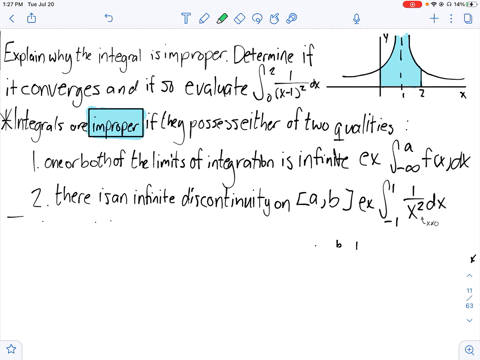 1:27 PM Tue Jul 20
14%
Explain why the integral is improper. Determine if
it converges and if so evaluate ∫₀² 1/(x-1)² dx
y
1 2 x
*Integrals are improper if they possess either of two qualities:
1. one or both of the limits of integration is infinite ex ∫_-∞^a f(x)dx
2. there is an infinite discontinuity on [a,b] ex ∫_-1^1 1/x² dx
x≠0
b 1
x
11
/
63